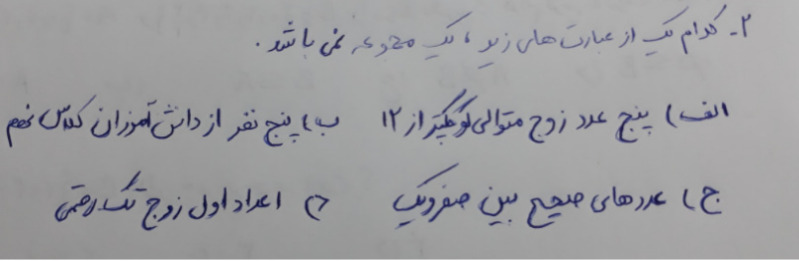 ۲- کدام یک از عبارت های زیر، یک مجموعه نمی باشد.
الف) پنج عدد زوج متوالی کوچکتر از ۱۲ ب) پنج نفر از دانش آموزان کلاس نهم
ج) عددهای صحیح بین صفر و یک د) اعداد اول زوج تک رقمی